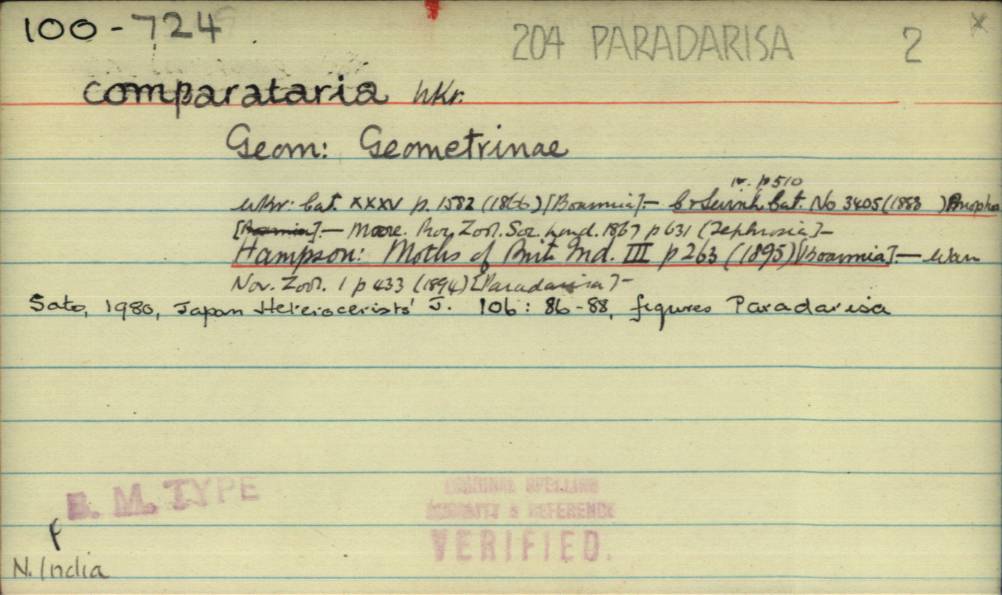 100-724
204 PARADARISA 2 x
comparataria Wkr.
Geom: Geometrinae
iv. p 510
Wkr: Cat. XXXV p. 1582 (1866) [Boarmia] — C & Swinh Cat. No 3405 (1888)
[Boarmia] — Moore. Proc Zool. Soc. Lond. 1867 p 631 (Tephrosia) —
Hampson: Moths of Brit. Ind. III p 263 (1895) [Boarmia] — Warr
Nov. Zool. 1 p 433 (1894) [Paradarisa] —
Sato, 1980, Japan Heterocerists' J. 106: 86-88, figures Paradarisa
B. M. TYPE
ORIGINAL SPELLING
& REFERENCE
VERIFIED.
N. India